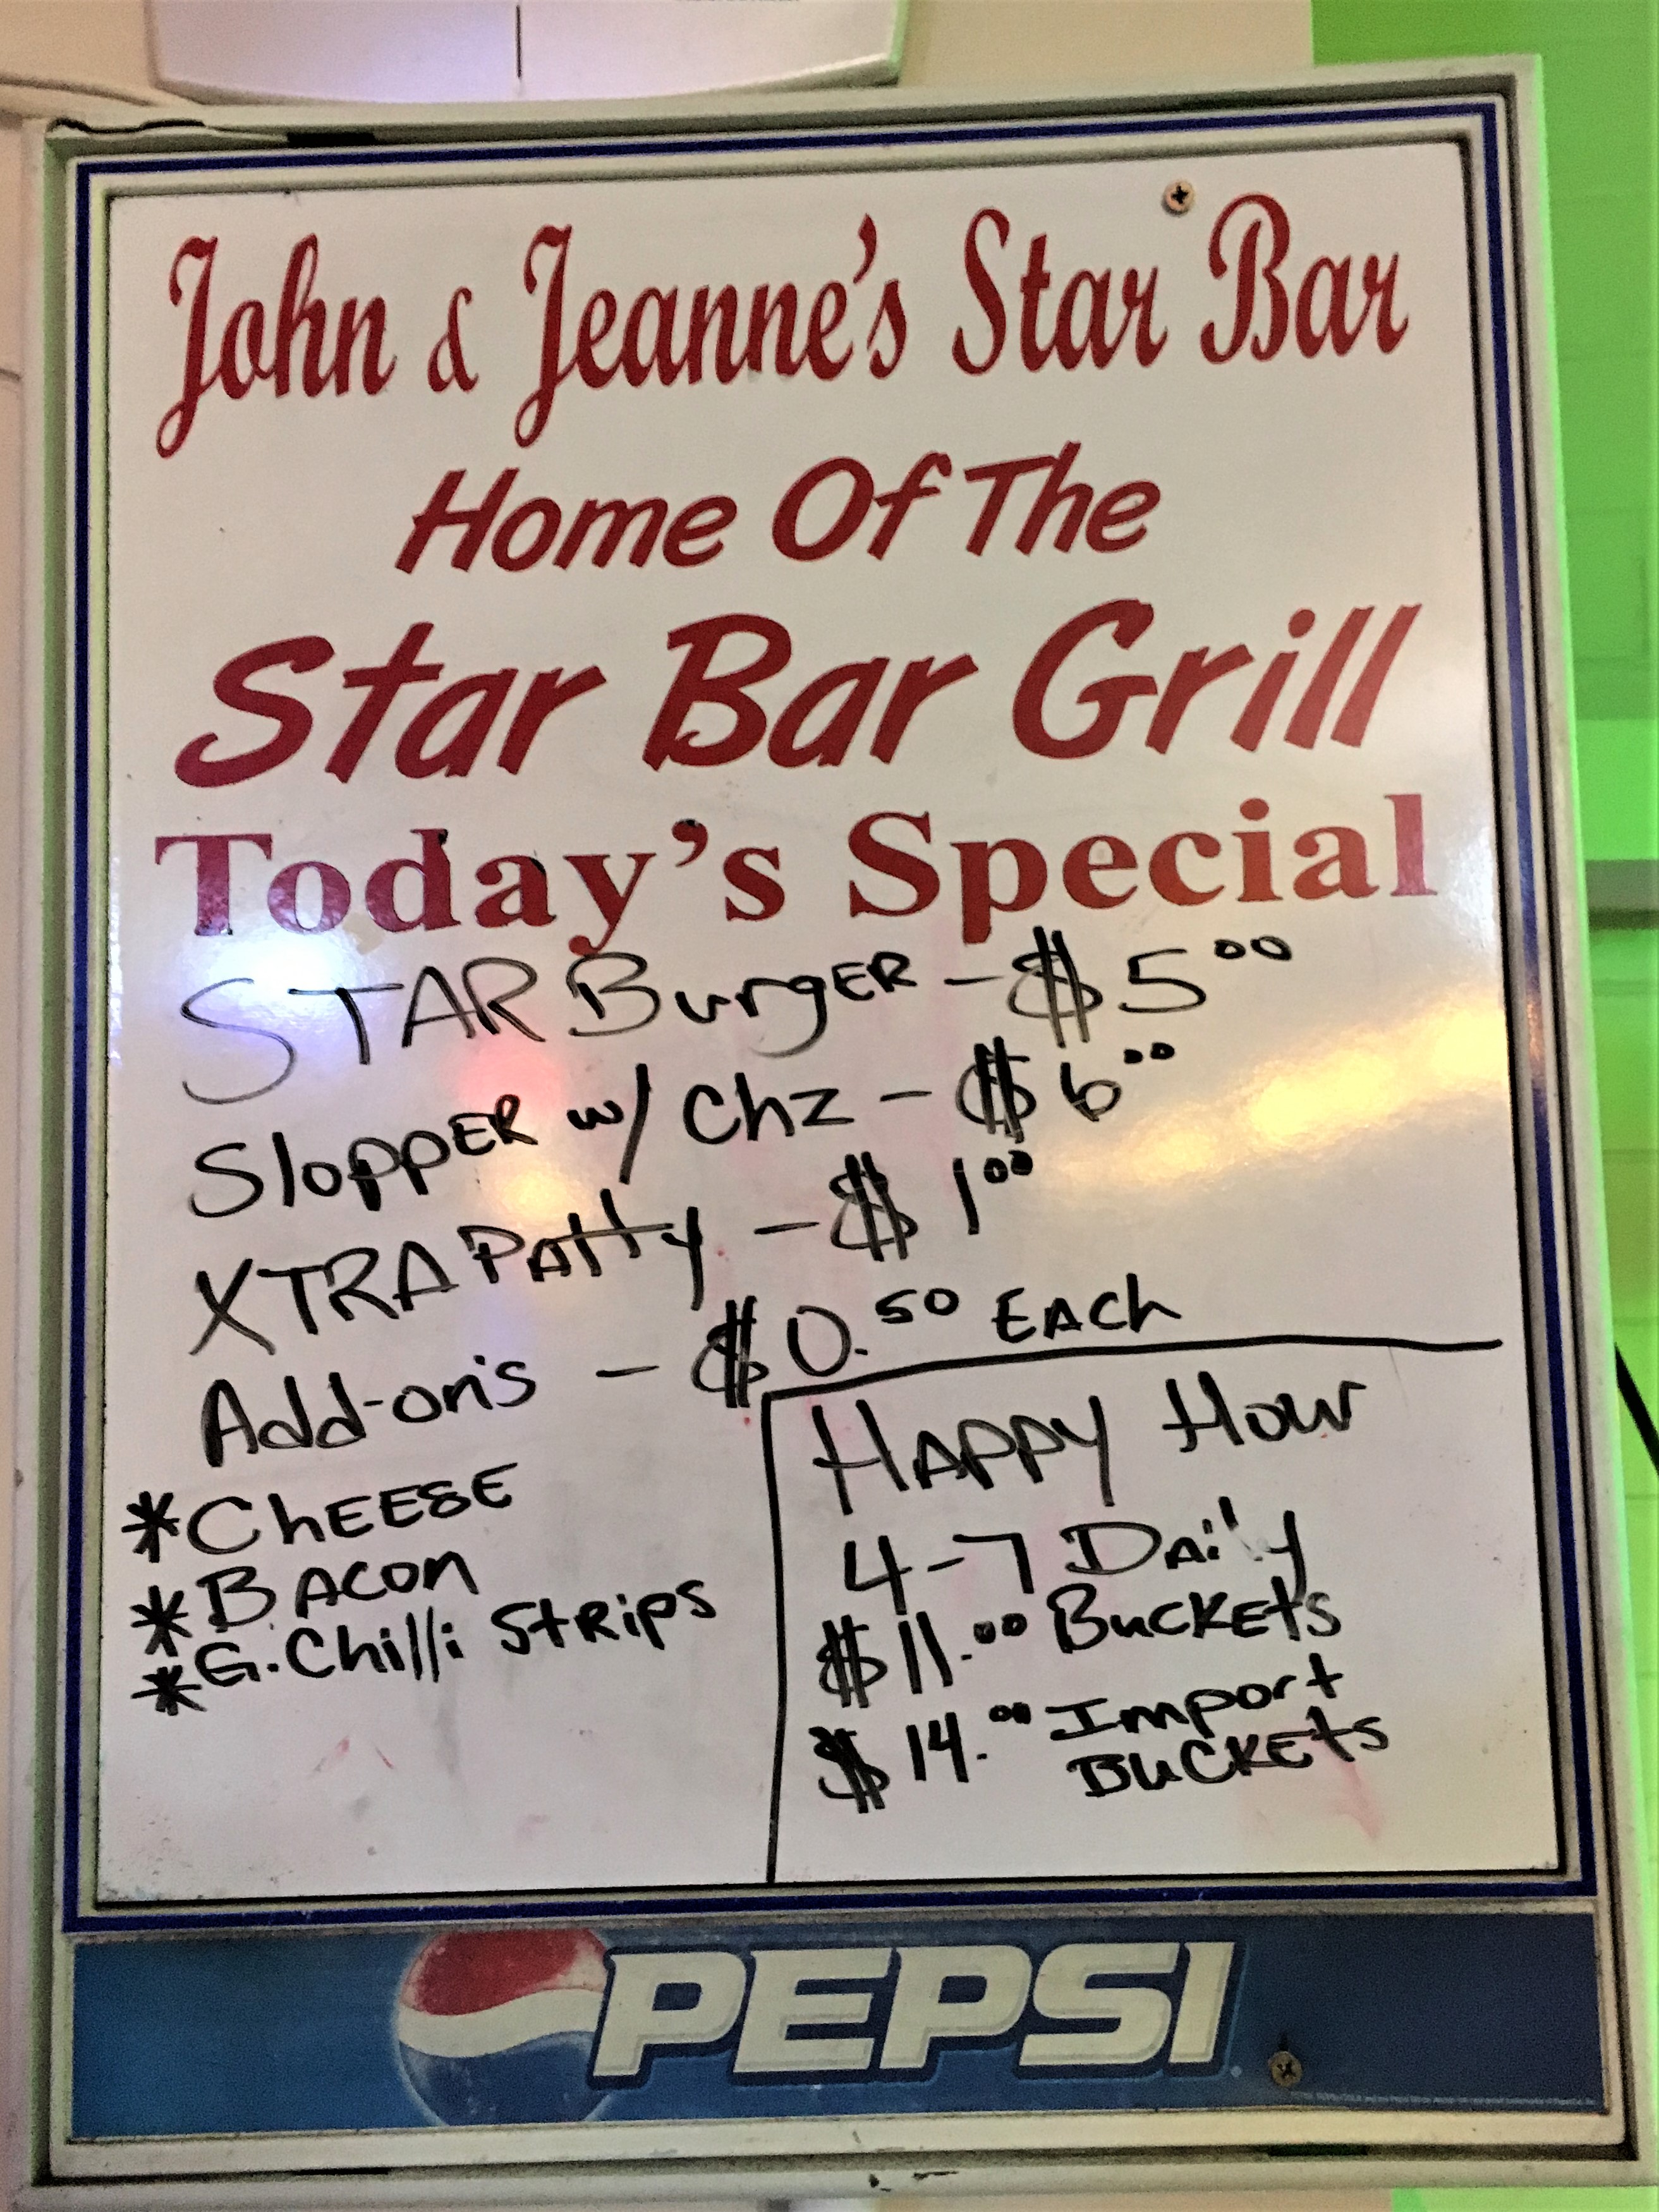 John & Jeanne's Star Bar
Home Of The
Star Bar Grill
Today's Special
STAR BurgER - $5.00
SloppER w/ Chz - $6.00
XTRA Patty - $1.00
Add-on's - $0.50 EACh
*ChEESE
*BAcon
*G. Chilli StRips
HAppy Hour
4-7 DAily
$11.00 BucKEts
$14.00 Import
BucKEts
PEPSI